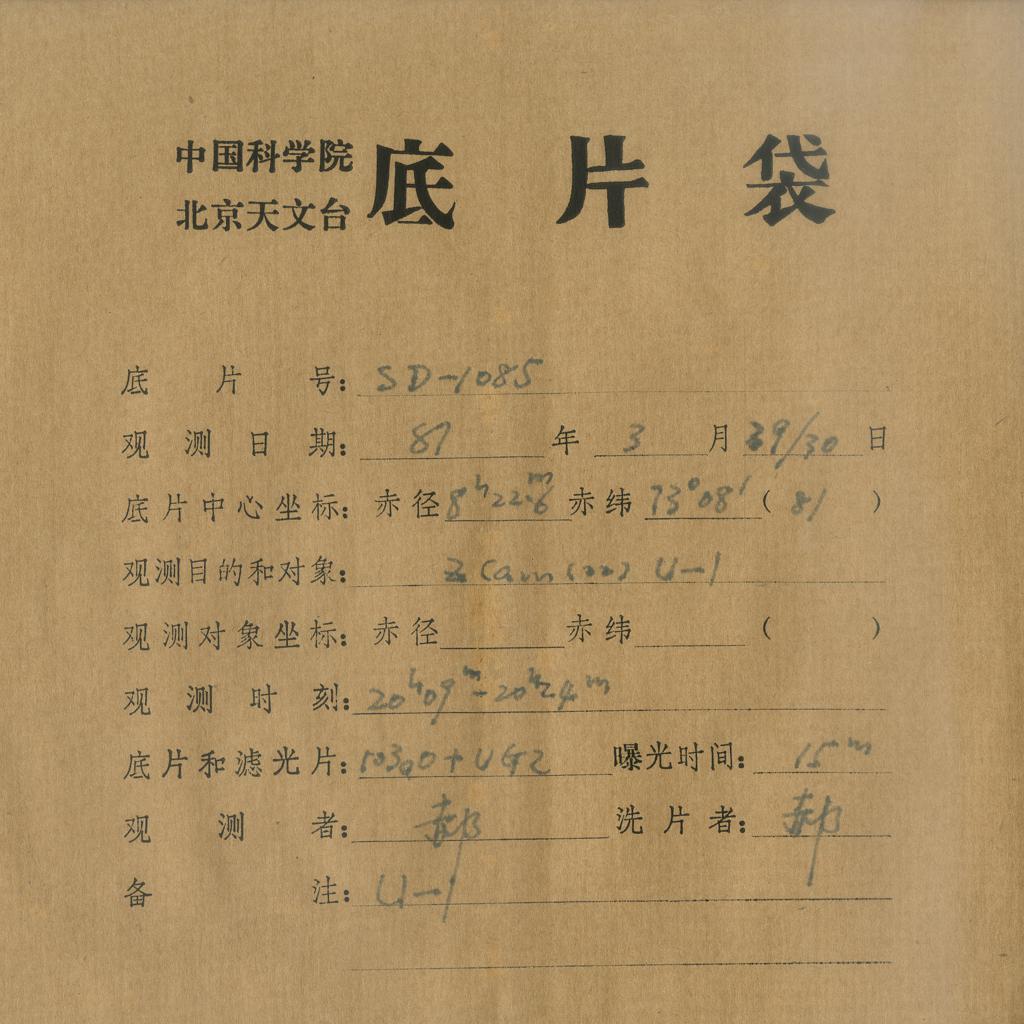 中国科学院
北京天文台 底片袋
底片号: SD-1085
观测日期: 81 年 3 月 29/30 日
底片中心坐标: 赤径 8h22m.6 赤纬 73°08′ ( 81 )
观测目的和对象: Z Cam U-1
观测对象坐标: 赤径 赤纬 ( )
观测时刻: 20h09m-20h24m
底片和滤光片: 103aO+UG2 曝光时间: 15m
观测者: 郝 洗片者: 郝
备注: U-1